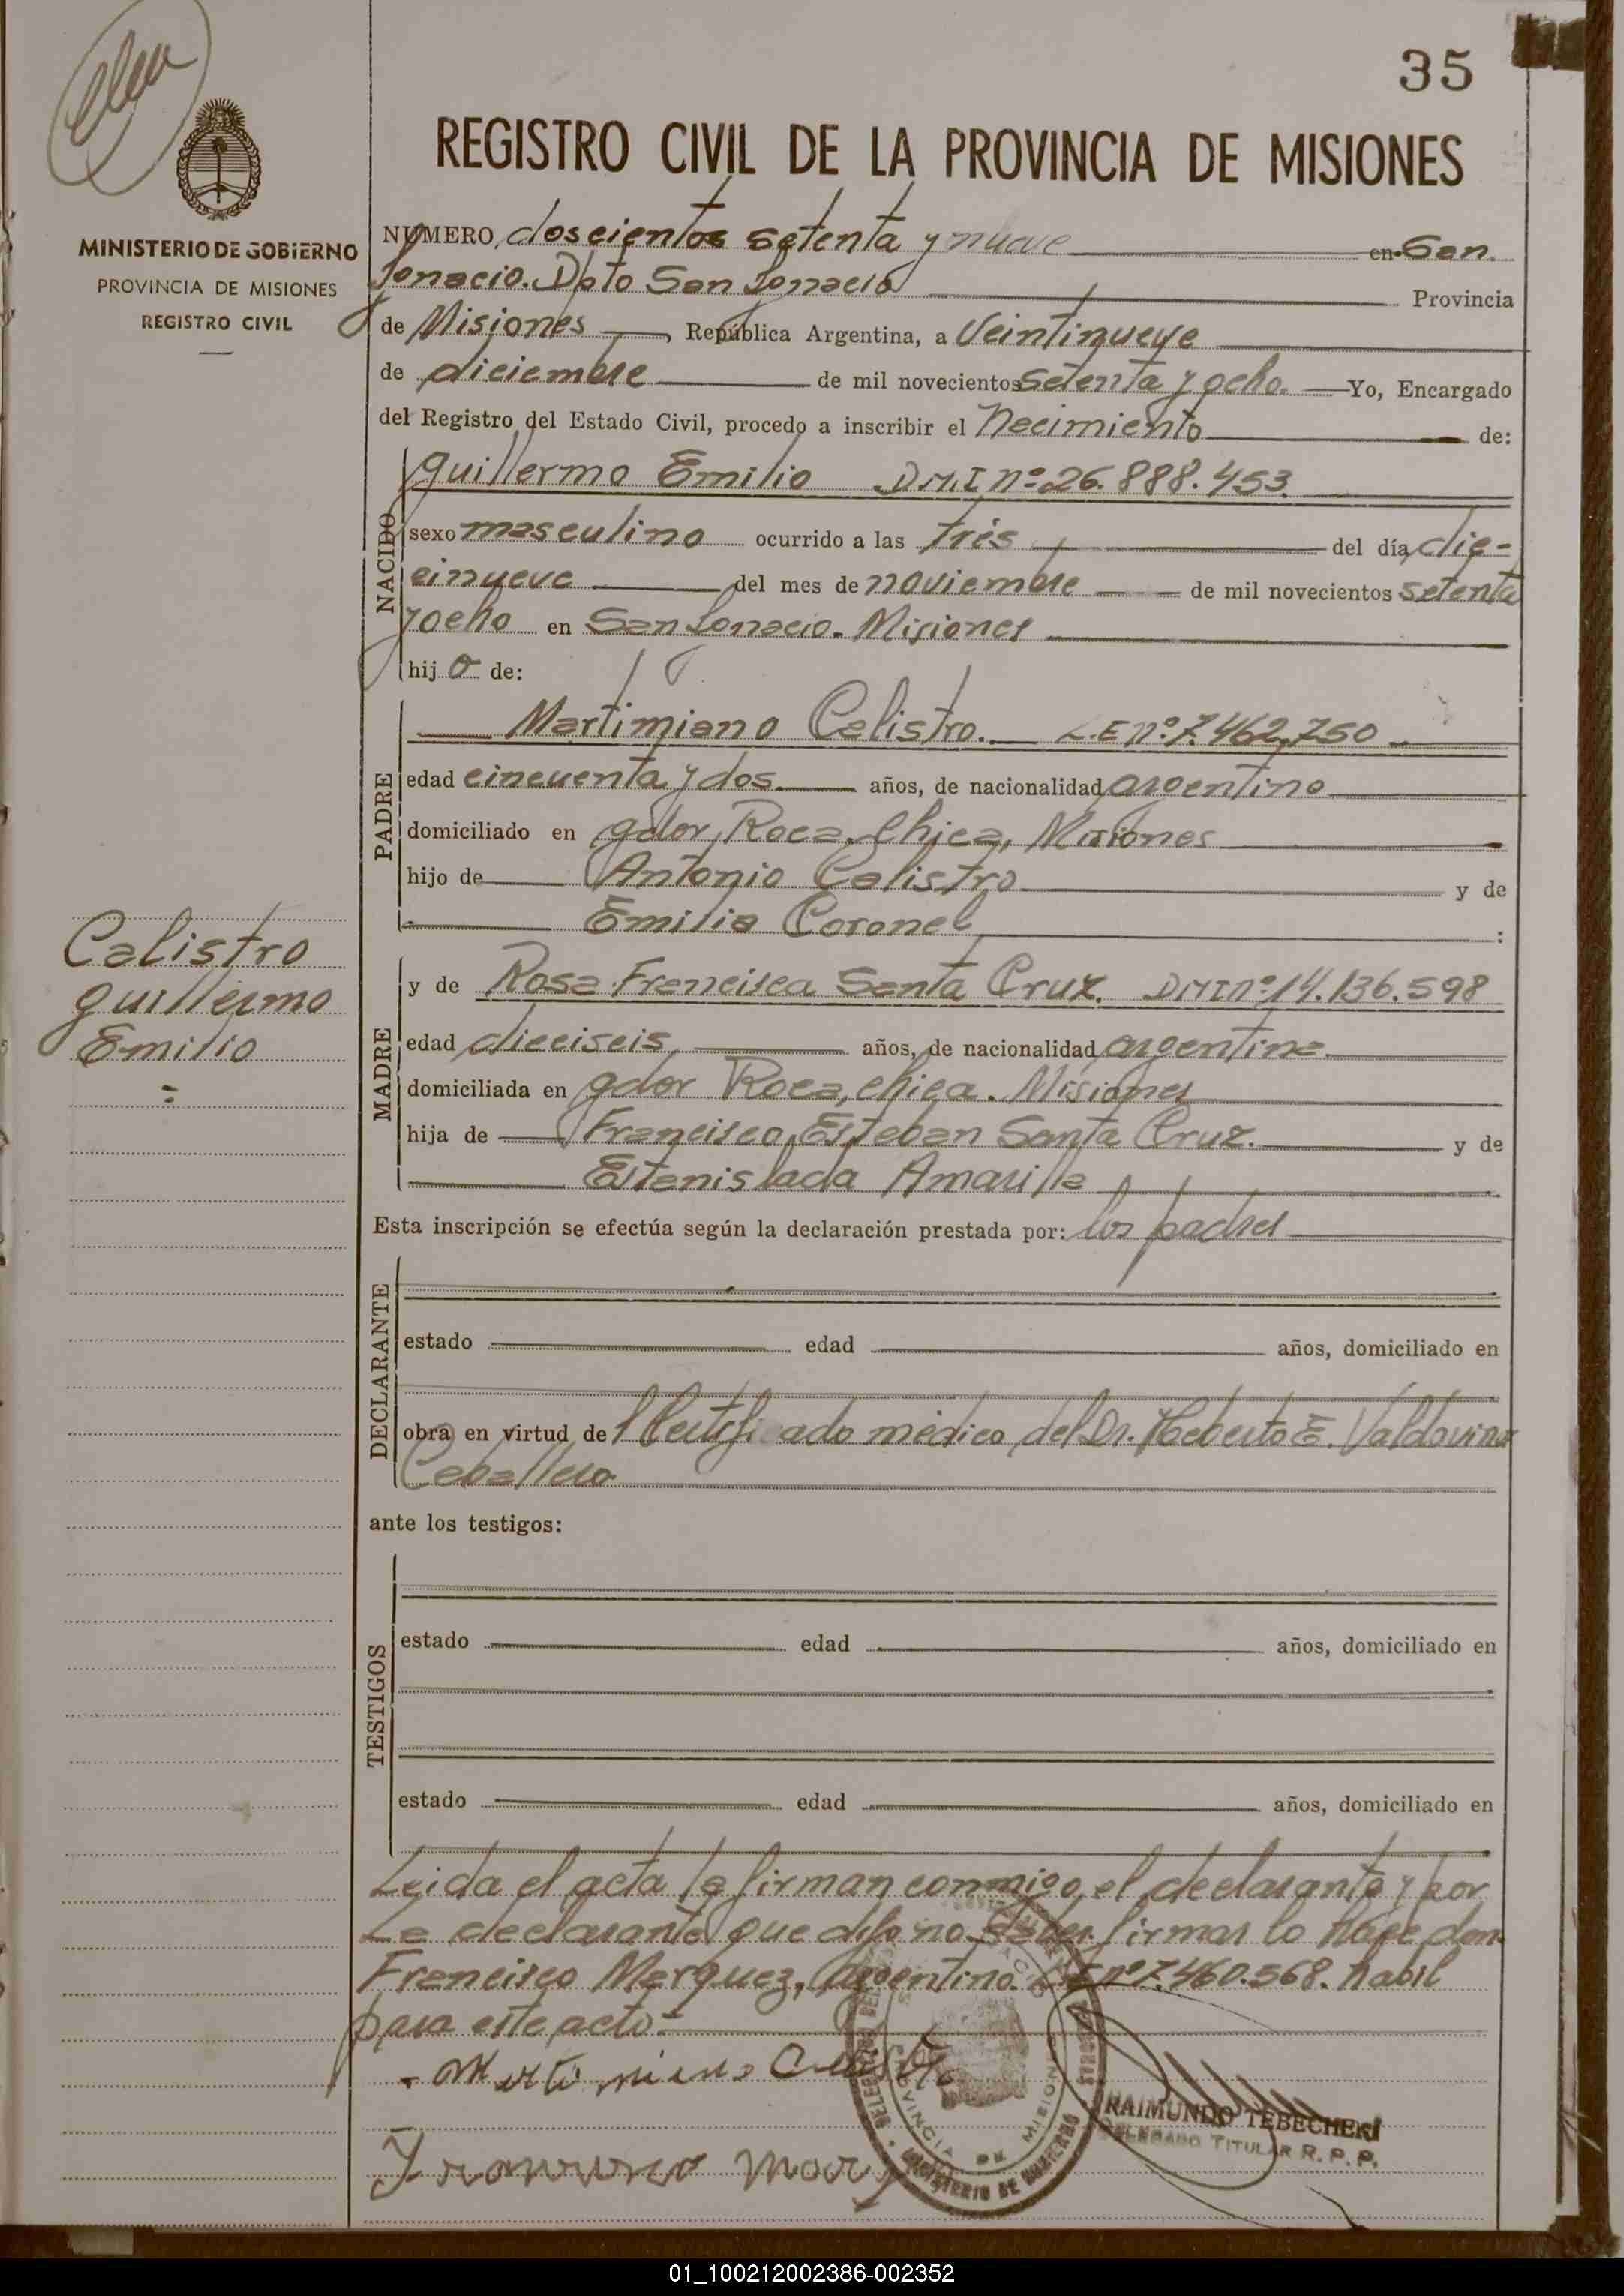 35
REGISTRO CIVIL DE LA PROVINCIA DE MISIONES
MINISTERIO DE GOBIERNO
PROVINCIA DE MISIONES
REGISTRO CIVIL
NUMERO doscientos setenta y nueve en San
Ignacio. Dpto San Ignacio Provincia
de Misiones República Argentina, a Veintinueve
de diciembre de mil novecientos setenta y ocho. Yo, Encargado
del Registro del Estado Civil, procedo a inscribir el Nacimiento de:
NACIDO
Guillermo Emilio D.M.I nº 26.888.453
sexo masculino ocurrido a las tres del día die-
cinueve del mes de noviembre de mil novecientos setenta
y ocho en San Ignacio. Misiones
hijo de:
PADRE
Martimiano Calistro. L.E nº 7.462.750
edad cincuenta y dos años, de nacionalidad argentino
domiciliado en gdor, Roca, Chica, Misiones
hijo de Antonio Calistro y de
Emilia Coronel :
Calistro
Guillermo
Emilio
=
MADRE
y de Rosa Francisca Santa Cruz. DMI nº 14.136.598
edad dieciseis años, de nacionalidad argentina
domiciliada en gdor Roca, chica. Misiones
hija de Francisco Esteban Santa Cruz. y de
Estanislada Amarilla
Esta inscripción se efectúa según la declaración prestada por: los padres
DECLARANTE
estado edad años, domiciliado en
obra en virtud del Certificado médico del Dr. Heberto E. Valdovino
Caballero
ante los testigos:
TESTIGOS
estado edad años, domiciliado en
estado edad años, domiciliado en
Leida el acta la firman conmigo, el declarante y por
La declarante que dijo no saber firmar lo hace don
Francisco Marquez, Argentino. LE nº 7.460.568. habil
para este acto.-
Martimiano Calistro
RAIMUNDO TEBECHERI
DELEGADO TITULAR R. P. P.
PROVINCIA DE MISIONES
MINISTERIO DE GOBIERNO
01_100212002386-002352